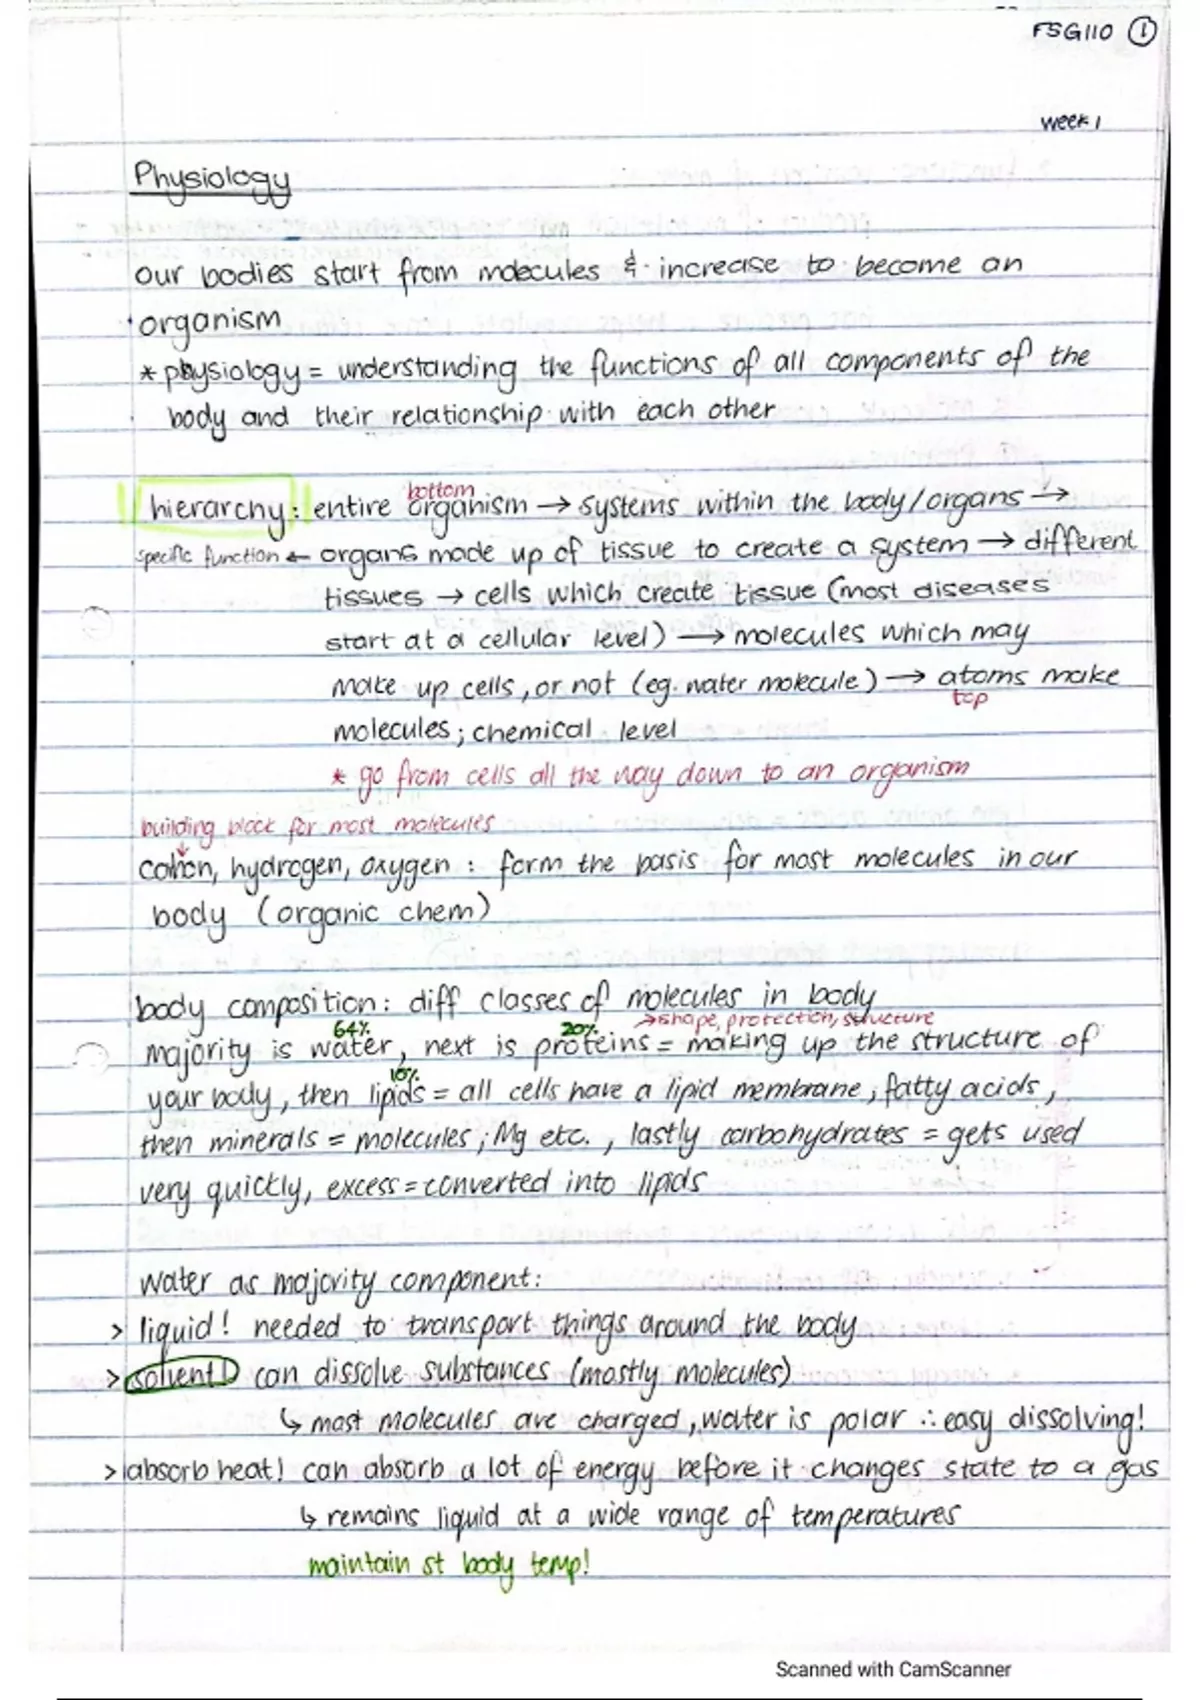 FSG110 1
Week 1
Physiology
our bodies start from molecules & increase to become an
organism
* physiology = understanding the functions of all components of the
body and their relationship with each other
bottom
hierarchy: entire organism → systems within the body/organs →
specific function ← organs made up of tissue to create a system → different
tissues → cells which create tissue (most diseases
start at a cellular level) → molecules which may
make up cells, or not (eg. water molecule) → atoms make
top
molecules; chemical level
* go from cells all the way down to an organism
building block for most molecules
carbon, hydrogen, oxygen : form the basis for most molecules in our
body (organic chem)
body composition: diff classes of molecules in body
64% 20% →shape, protection, structure
majority is water, next is proteins = making up the structure of
10%
your body, then lipids = all cells have a lipid membrane; fatty acids,
then minerals = molecules; Mg etc., lastly carbohydrates = gets used
very quickly, excess = converted into lipids
water as majority component:
> liquid! needed to transport things around the body
> solvent! can dissolve substances (mostly molecules)
↳ most molecules are charged, water is polar ∴ easy dissolving!
> absorb heat! can absorb a lot of energy before it changes state to a gas
↳ remains liquid at a wide range of temperatures
maintain st body temp!
Scanned with CamScanner